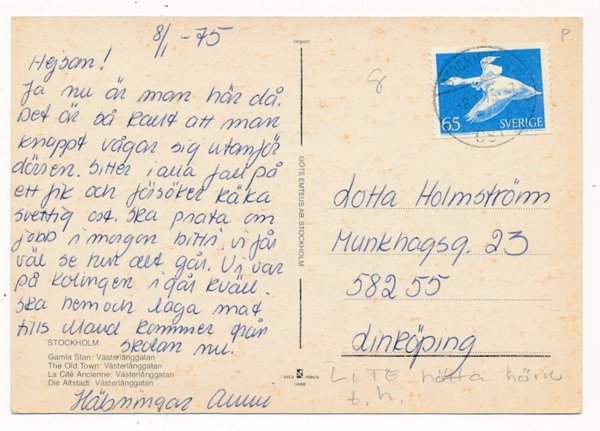 8/1 -75
Hejsan!
Ja nu är man här då.
Det är så kallt att man
knappt vågar sig utanför
dörren. Sitter i alla fall på
ett fik och försöker käka
svettig ost. Ska prata om
jobb i morgon bitti, vi får
väl se hur det går. Vi var
på Kolingen i går kväll.
Ska hem och laga mat
tills Maud kommer från
skolan nu.
STOCKHOLM
Gamla Stan: Västerlånggatan
The Old Town: Västerlånggatan
La Cité Ancienne: Västerlånggatan
Die Altstadt: Västerlånggatan
Hälsningar Anni
Import
GÖTE EMTEUS AB, STOCKHOLM
vita nova
8
P
65 SVERIGE
Lotta Holmström
Munkhagsg. 23
582 55
Linköping
LITE nötta hörn
t.h.